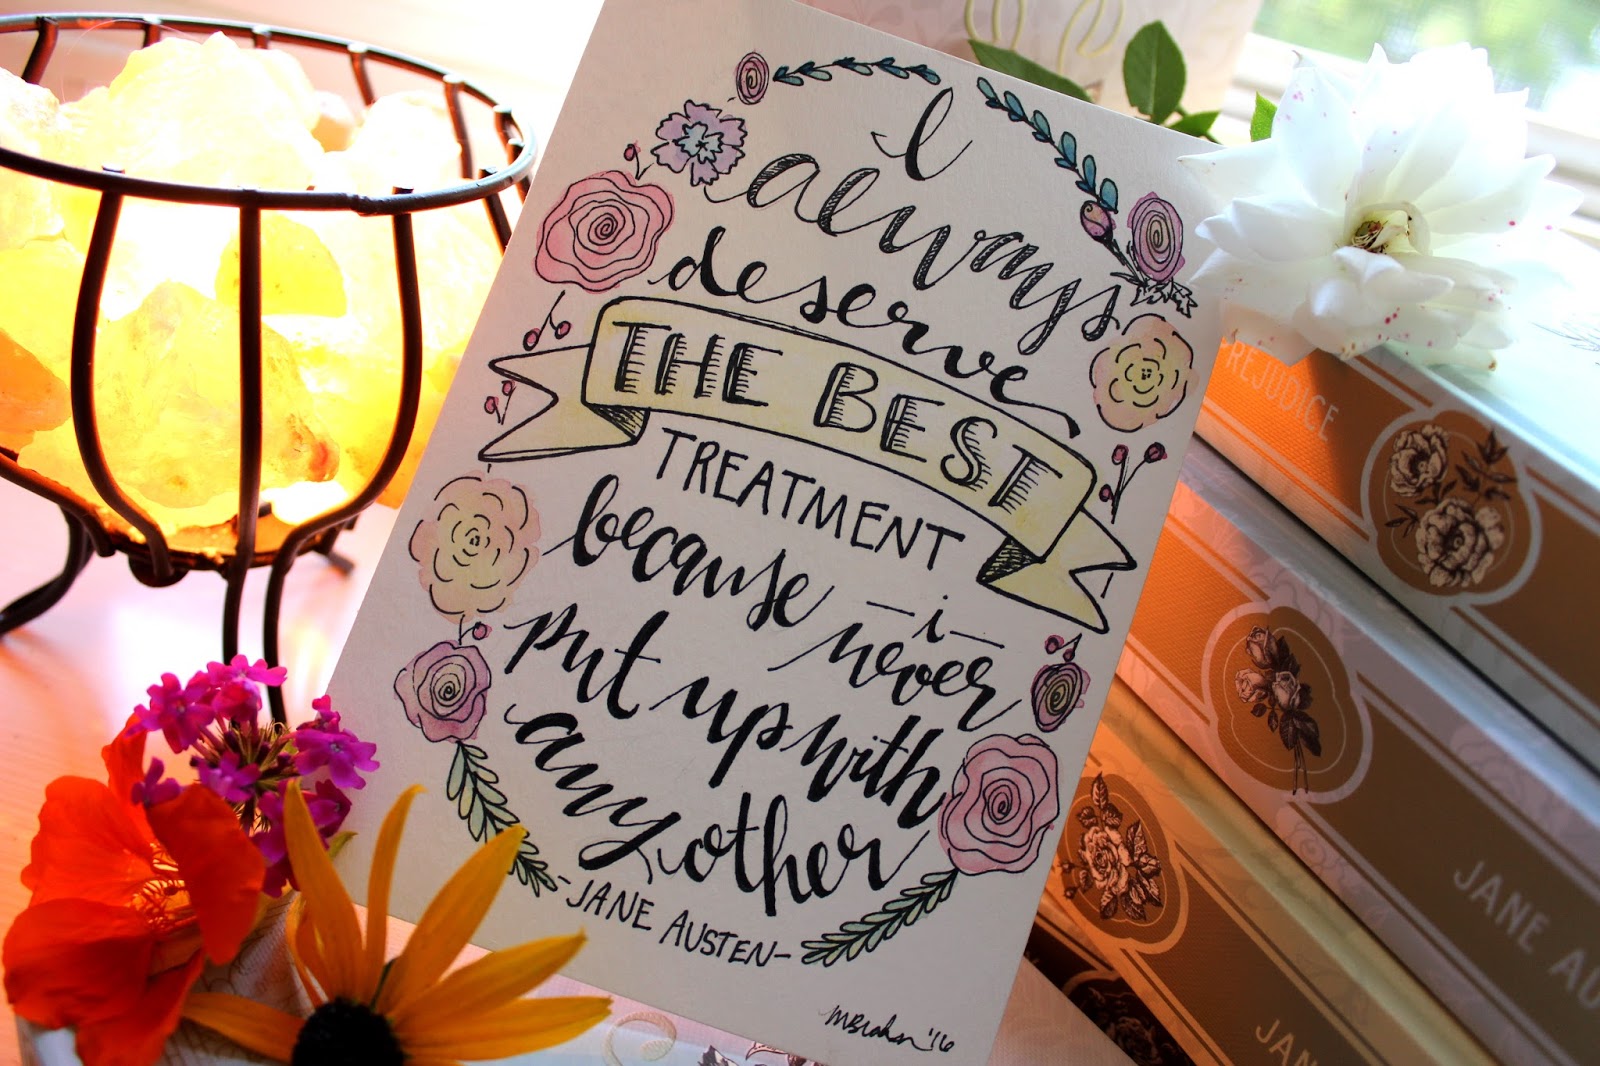 I
always
deserve
THE BEST
TREATMENT
because -i-
never
put up with
any other
-JANE AUSTEN-
'16
PREJUDICE
JANE AU
JAN